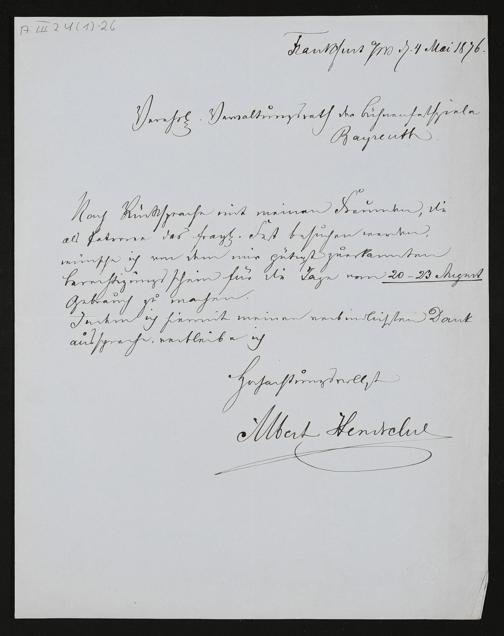 A III 24 (1)-26
Frankfurt a/M d. 4 Mai 1876.
Verehrl. Verwaltungsrath der Bühnenfestspiele
Bayreuth
Nach Rücksprache mit meinen Freunden, die
als Patrone das fragl. Fest besuchen werden,
wünsche ich von dem mir gütigst zuerkannten
Berechtigungsschein für die Tage vom 20-23 August
Gebrauch zu machen.
Indem ich hiermit meinen verbindlichsten Dank
ausspreche, verbleibe ich
Hochachtungsvollst
Albert Hendschel